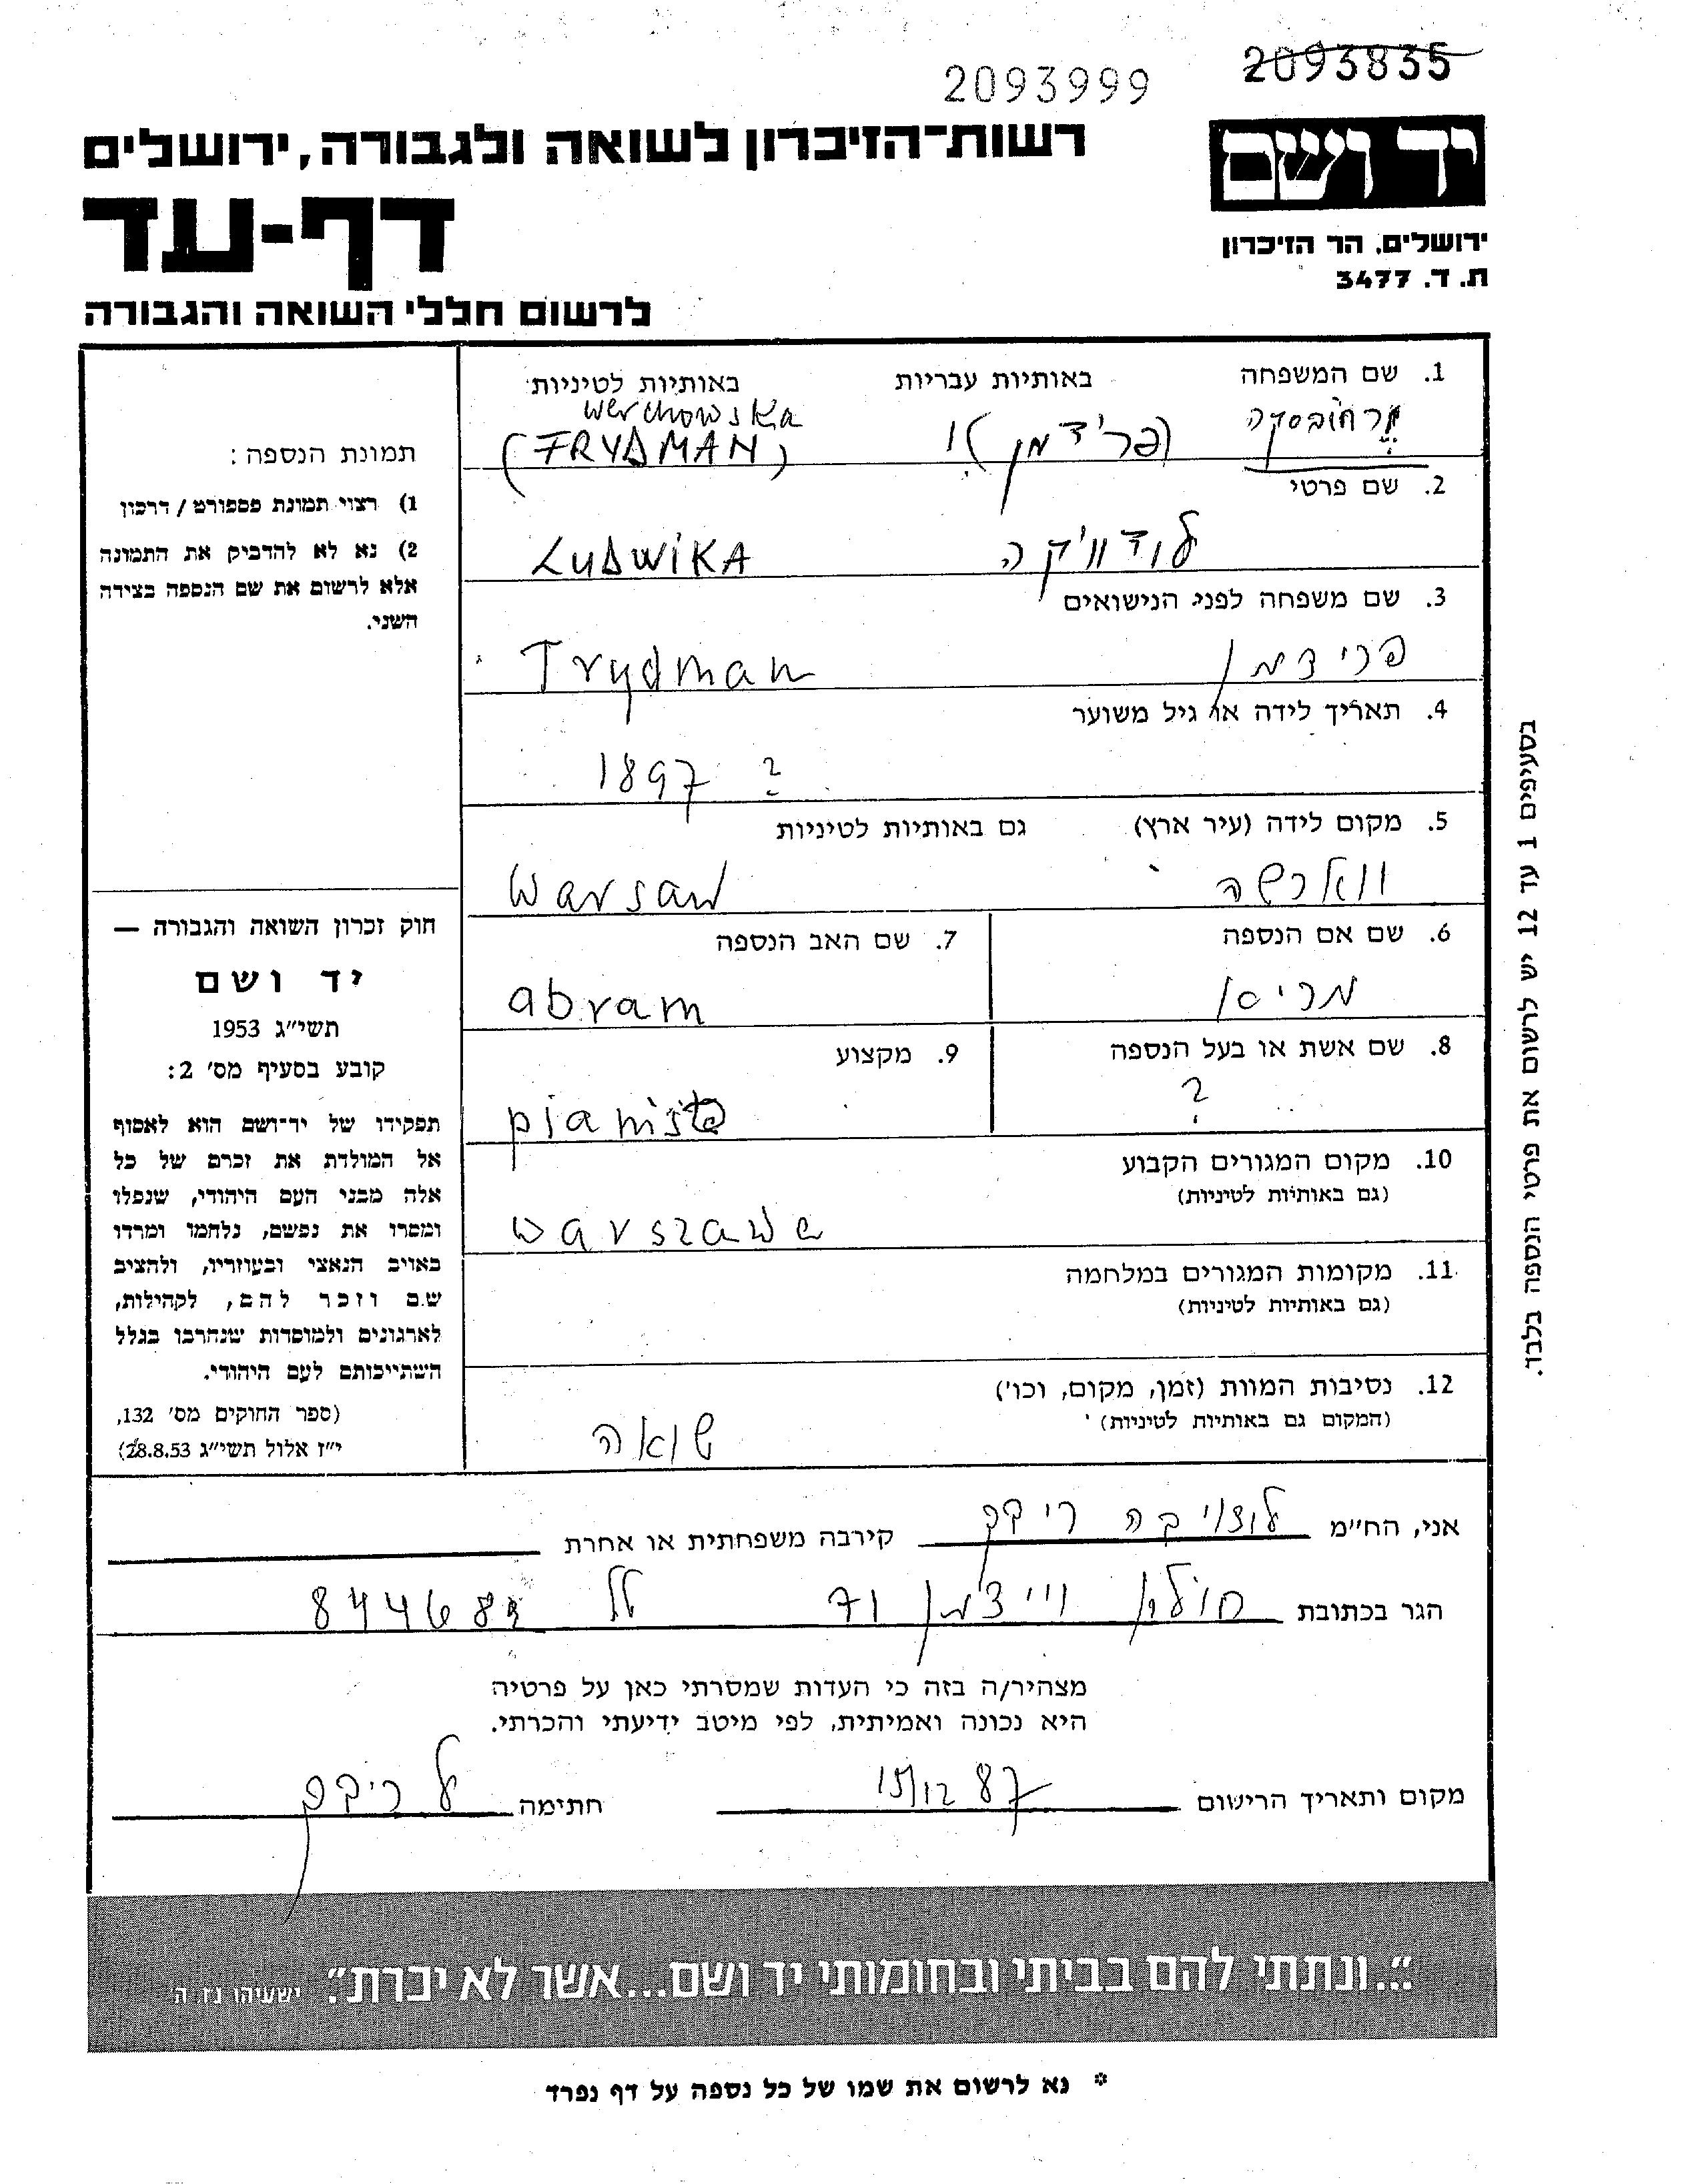 2093835
2093999
יד ושם
ירושלים, הר הזיכרון
ת. ד. 3477
רשות-הזיכרון לשואה ולגבורה, ירושלים
דף-עד
לרשום חללי השואה והגבורה
1. שם המשפחה באותיות עבריות באותיות לטיניות
ורחובסקה Werchowska
(פרידמן) (FRYDMAN)
2. שם פרטי
לודוויקה LUDWIKA
3. שם משפחה לפני הנישואים
פרידמן Frydman
4. תאריך לידה או גיל משוער
1897 ?
5. מקום לידה (עיר ארץ) גם באותיות לטיניות
ווארשה Warsaw
6. שם אם הנספה 7. שם האב הנספה
abram
8. שם אשת או בעל הנספה 9. מקצוע
? pianista
10. מקום המגורים הקבוע
(גם באותיות לטיניות)
warszawa
11. מקומות המגורים במלחמה
(גם באותיות לטיניות)
12. נסיבות המוות (זמן, מקום, וכו')
(המקום גם באותיות לטיניות)
שואה
תמונת הנספה:
1) רצוי תמונת פספורט / דרכון
2) נא לא להדביק את התמונה
אלא לרשום את שם הנספה בצידה
השני.
חוק זכרון השואה והגבורה —
יד ושם
תשי"ג 1953
קובע בסעיף מס' 2:
תפקידו של יד-ושם הוא לאסוף
אל המולדת את זכרם של כל
אלה מבני העם היהודי, שנפלו
ומסרו את נפשם, נלחמו ומרדו
באויב הנאצי ובעוזריו, ולהציב
שם וזכר להם, לקהילות,
לארגונים ולמוסדות שנחרבו בגלל
השתייכותם לעם היהודי.
(ספר החוקים מס' 132,
י"ז אלול תשי"ג 28.8.53)
בסעיפים 1 עד 12 יש לרשום את פרטי הנספה בלבד.
אני, הח"מ קירבה משפחתית או אחרת
הגר בכתובת חולון ויצמן 71 טל 844683
מצהיר/ה בזה כי העדות שמסרתי כאן על פרטיה
היא נכונה ואמיתית, לפי מיטב ידיעתי והכרתי.
מקום ותאריך הרישום 15/12 87 חתימה
"...ונתתי להם בביתי ובחומותי יד ושם...אשר לא יכרת". ישעיהו נז. ה
* נא לרשום את שמו של כל נספה על דף נפרד